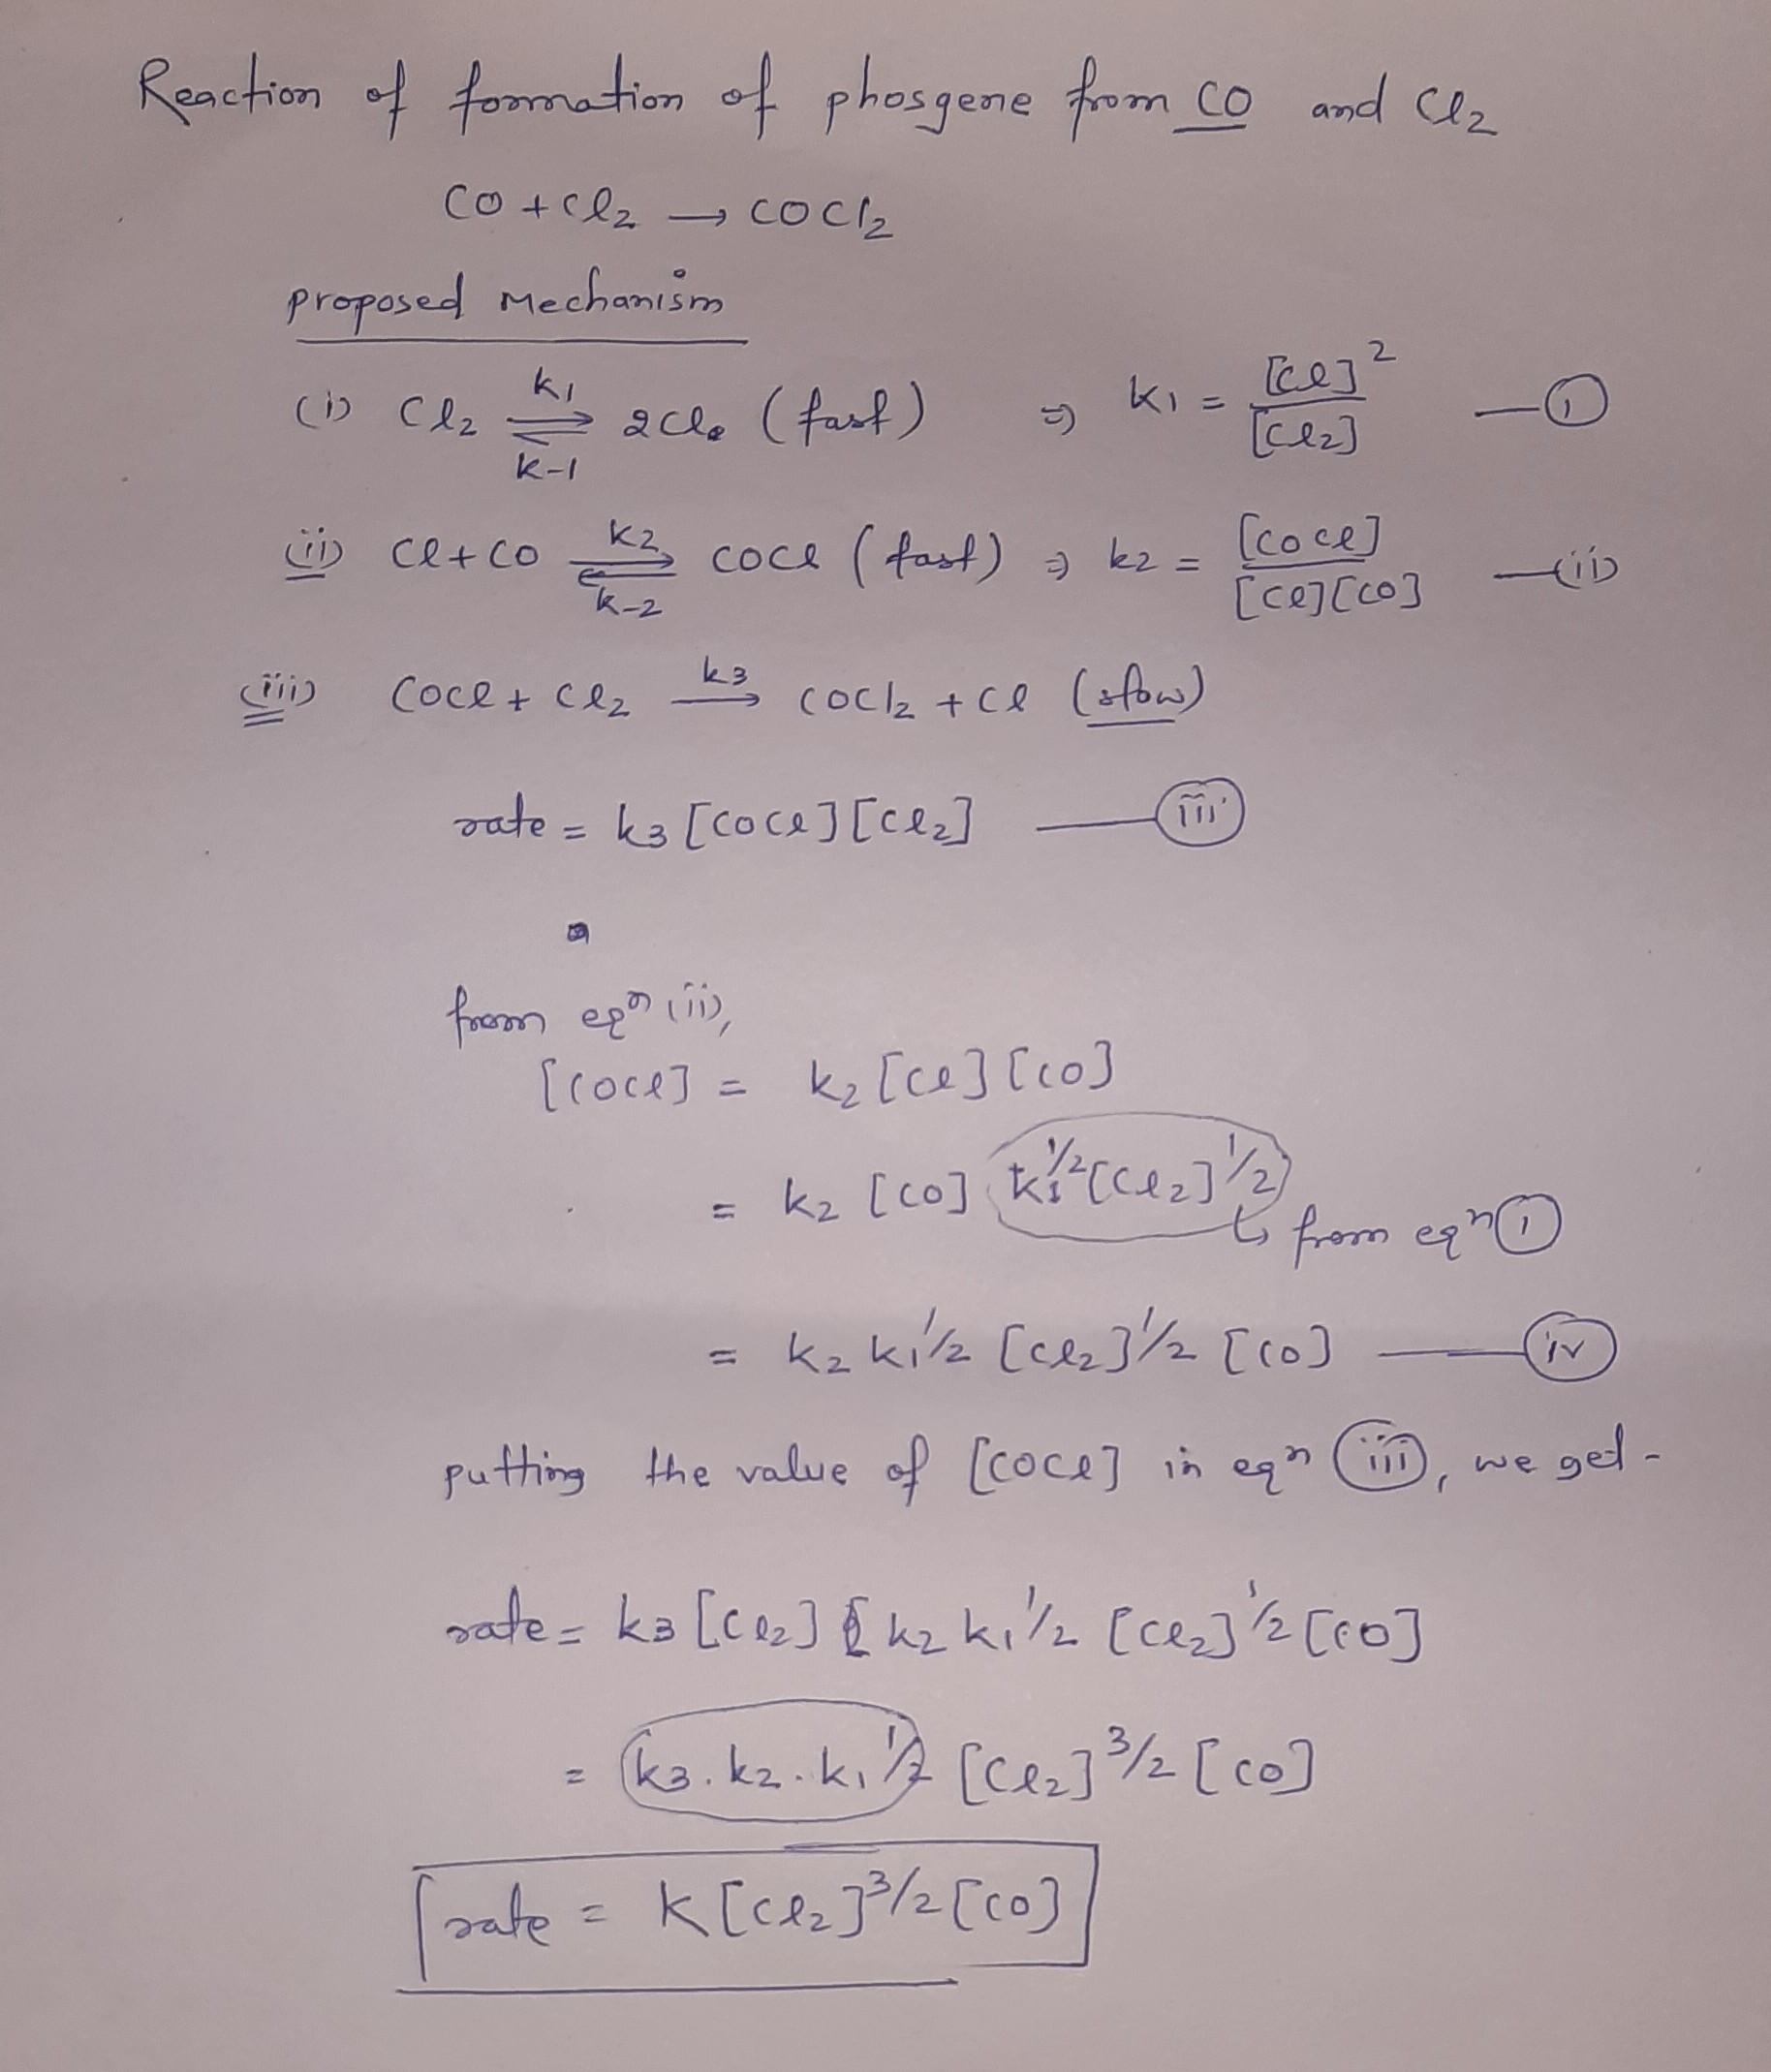 Reaction of formation of phosgene from CO and Cl₂
CO + Cl₂ → COCl₂
proposed Mechanism
(i) Cl₂ ⇌ 2Cl• (fast) ⇒ k₁ = [Cl]²/[Cl₂] —(i)
k₁
k-1
(ii) Cl + CO ⇌ COCl (fast) ⇒ k₂ = [COCl]/[Cl][CO] —(ii)
k₂
k-2
(iii) COCl + Cl₂ →k₃ COCl₂ + Cl (slow)
rate = k₃ [COCl][Cl₂] —(iii)
from eqⁿ (ii),
[COCl] = k₂ [Cl][CO]
= k₂ [CO] k₁^1/2 [Cl₂]^1/2
↳ from eqⁿ (i)
= k₂ k₁^1/2 [Cl₂]^1/2 [CO] —(iv)
putting the value of [COCl] in eqⁿ (iii), we get -
rate = k₃ [Cl₂] k₂ k₁^1/2 [Cl₂]^1/2 [CO]
= k₃.k₂.k₁^1/2 [Cl₂]^3/2 [CO]
rate = K [Cl₂]^3/2 [CO]